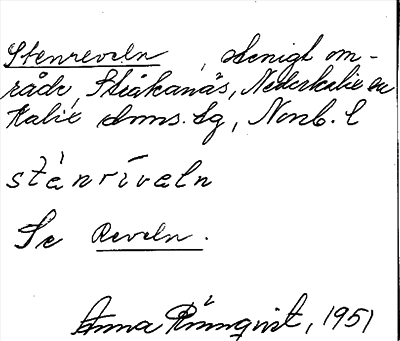 Stenreveln, stenigt om-
råde, Stråkanäs, Nederkalix o
Kalix sms. sg, Nonb. l
sténrìvæln
Se Reveln.
Anna Rönnqvist, 1951